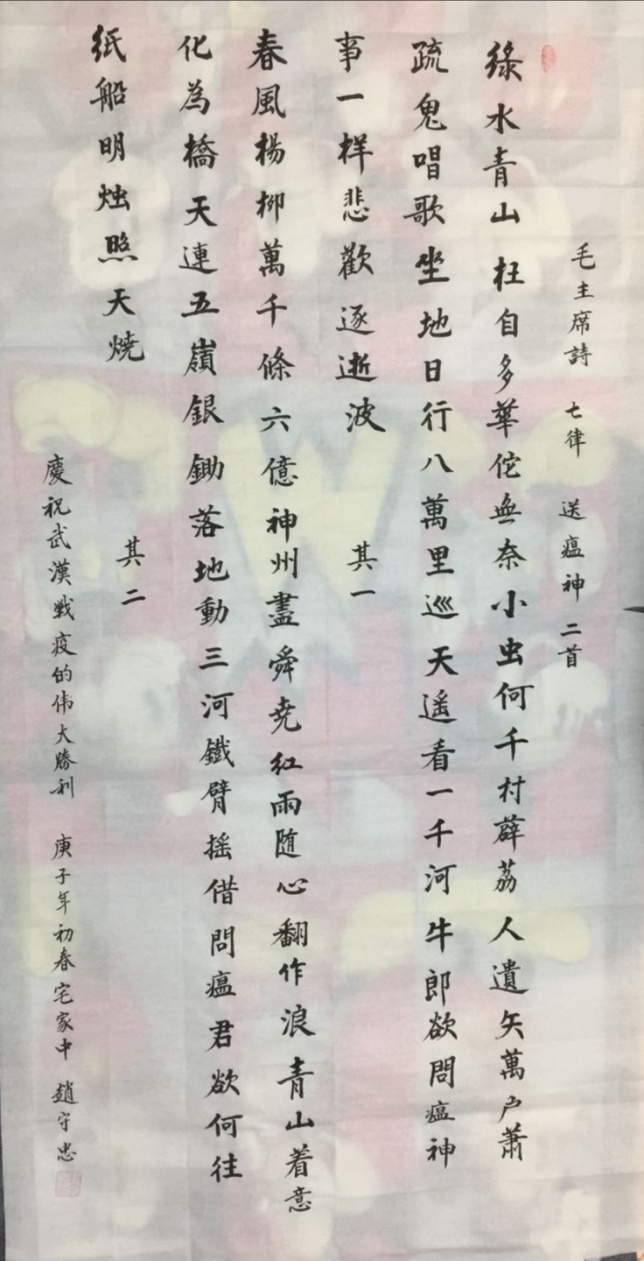 毛主席詩 七律 送瘟神 二首
綠水青山枉自多華佗無奈小虫何千村薜荔人遺矢萬户蕭
疏鬼唱歌坐地日行八萬里巡天遥看一千河牛郎欲問瘟神
事一样悲歡逐逝波 其一
春風楊柳萬千條六億神州盡舜尭紅雨随心翻作浪青山着意
化為橋天連五嶺銀鋤落地動三河鐵臂摇借問瘟君欲何往
紙船明烛照天燒 其二
慶祝武漢戰疫的伟大勝利 庚子年初春宅家中 趙守忠